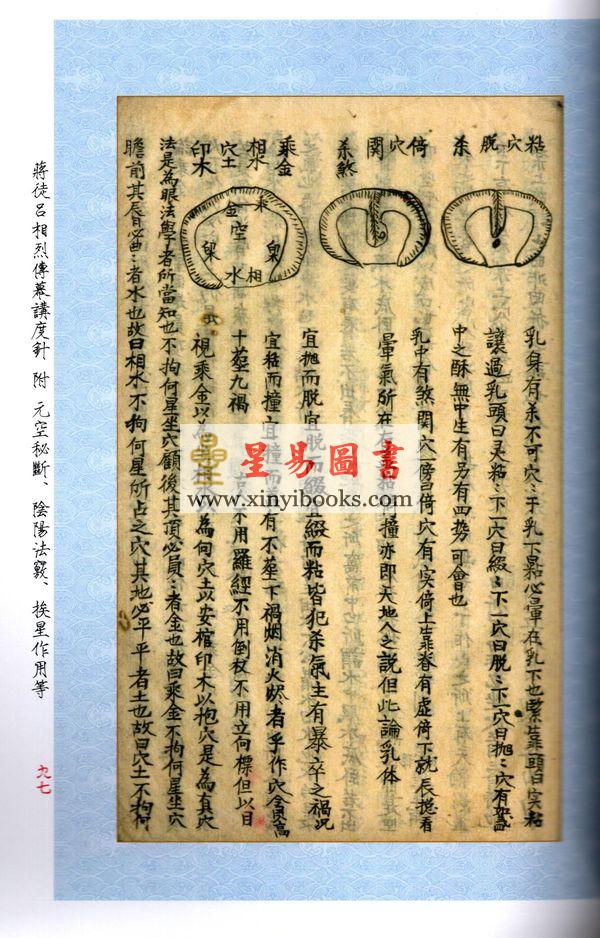 粘穴脫杀
倚穴関杀煞
乘金
相水
穴土
印木
乘
金
空
㮚
㮚
水
相
乳身有杀不可穴〻于乳下㸃必暈在乳下也緊靠頭曰实粘
讓過乳頭曰灵粘〻下一穴曰綴〻下一穴曰脫〻下一穴曰抛〻穴有
中之酥無中生有另有四势可會也
乳中有煞関穴一傍曰倚穴有实倚上靠眷有虛倚下就辰揽看
暈氣所在
撞亦即天地人之說但此論乳体
宜抛而脫宜脫而綴
綴而粘皆犯杀氣主有暴卒之禍况
宜粘而撞宜撞而
有不塟下禍烟消火煅者乎作穴貪高
十塟九禍
不用羅經不用倒杖不用立向標但以目
視乘金以為
為向穴土以安棺印木以抱穴是為真穴
法是為眼法學者所當知也不拘何星坐穴顧後其頂必員〻者金也故曰乘金不拘何星坐穴
瞻前其唇必曲〻者水也故曰相水不拘何星所占之穴其地必平平者土也故曰穴土不拘何
星易圖書
www.xinyibooks.com
蔣徒呂相烈傳幕講度針 附 元空秘斷、陰陽法竅、挨星作用等
九七